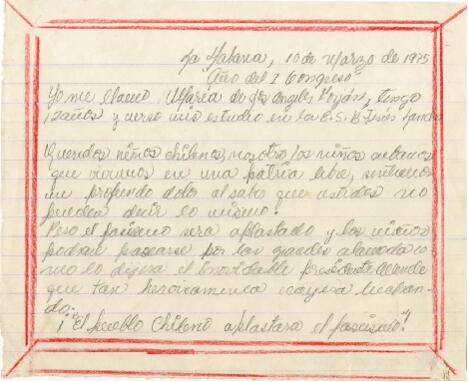 La Habana, 10 de Marzo de 1975
"Año del I Congreso"
Yo me llamo María de los Angeles, tengo
años y curso mis estudio en la E.S.B Jesús
Queridos niños chilenos, nosotro los niños cubanos
que vivimos en una patria libre, sentimos
un profundo dolor al saber que ustedes no
pueden decir lo mismo.
Pero el facismo sera aplastado y los niños
podran pasearse por las grandes alameda co
mo lo dijera el inolvidable presidente Allende
que tan heroicamente cayera luchan-
do.
¡El pueblo Chileno aplastara el fascismo"!